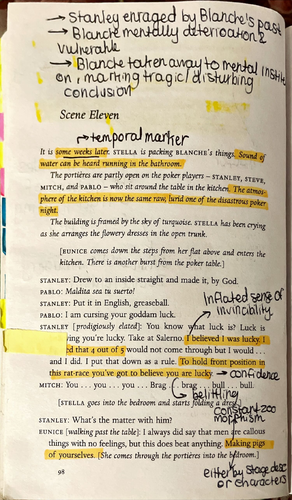 → Stanley enraged by Blanche's past
→ Blanche mentally deterioation &
vulnerable
→ Blanche taken away to mental instit
on, marking tragic/disturbing
conclusion
Scene Eleven
→ temporal marker
It is some weeks later. STELLA is packing BLANCHE's things. Sound of
water can be heard running in the bathroom.
The portières are partly open on the poker players – STANLEY, STEVE,
MITCH, and PABLO – who sit around the table in the kitchen. The atmos-
phere of the kitchen is now the same raw, lurid one of the disastrous poker
night.
The building is framed by the sky of turquoise. STELLA has been crying
as she arranges the flowery dresses in the open trunk.
[EUNICE comes down the steps from her flat above and enters the
kitchen. There is another burst from the poker table.]
STANLEY: Drew to an inside straight and made it, by God.
PABLO: Maldita sea tu suerto!
STANLEY: Put it in English, greaseball.
PABLO: I am cursing your goddam luck.
inflated sense of
invincibility
STANLEY [prodigiously elated]: You know what luck is? Luck is
ing you're lucky. Take at Salerno. I believed I was lucky. I
ed that 4 out of 5 would not come through but I would . . .
and I did. I put that down as a rule. To hold front position in
this rat-race you've got to believe you are lucky.
→ confidence
MITCH: You . . . you . . . you . . . Brag . . . brag . . . bull . . . bull.
belittling
[STELLA goes into the bedroom and starts folding a dress.]
constant zoo
morphism
STANLEY: What's the matter with him?
EUNICE [walking past the table]: I always did say that men are callous
things with no feelings, but this does beat anything. Making pigs
of yourselves. [She comes through the portières into the bedroom.]
either by stage desc
or characters
98